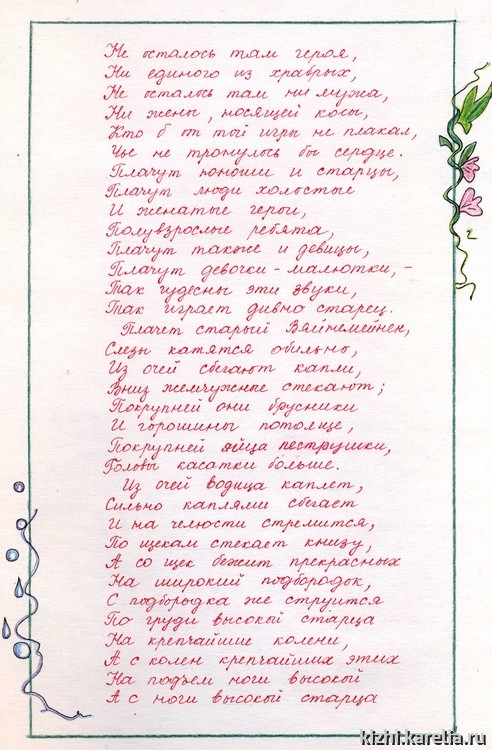 Не осталось там героя,
Ни единого из храбрых,
Не осталось там ни мужа,
Ни жены, носящей косы,
Кто б от той игры не плакал,
Чье не тронулось бы сердце.
Плачут юноши и старцы,
Плачут люди холостые
И женатые герои,
Полувзрослые ребята,
Плачут также и девицы,
Плачут девочки-малютки,-
Так чудесны эти звуки,
Так играет дивно старец.
Плачет старый Вяйнемейнен,
Слезы катятся обильно,
Из очей сбегают капли,
Вниз жемчужные стекают;
Покрупней они брусники
И горошины потолще,
Покрупней яйца пеструшки,
Головы касатки больше.
Из очей водица каплет,
Сильно каплями сбегает
И на челюсти стремится,
По щекам стекает книзу,
А со щек бежит прекрасных
На широкий подбородок,
С подбородка же струится
По груди высокой старца
На крепчайшие колени,
А с колен крепчайших этих
На подъем ноги высокой
А с ноги высокой старца
kizhi.karelia.ru